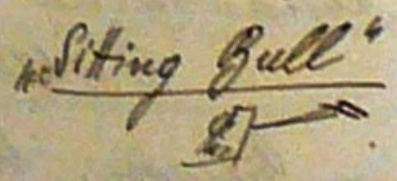 „Sitting Bull“